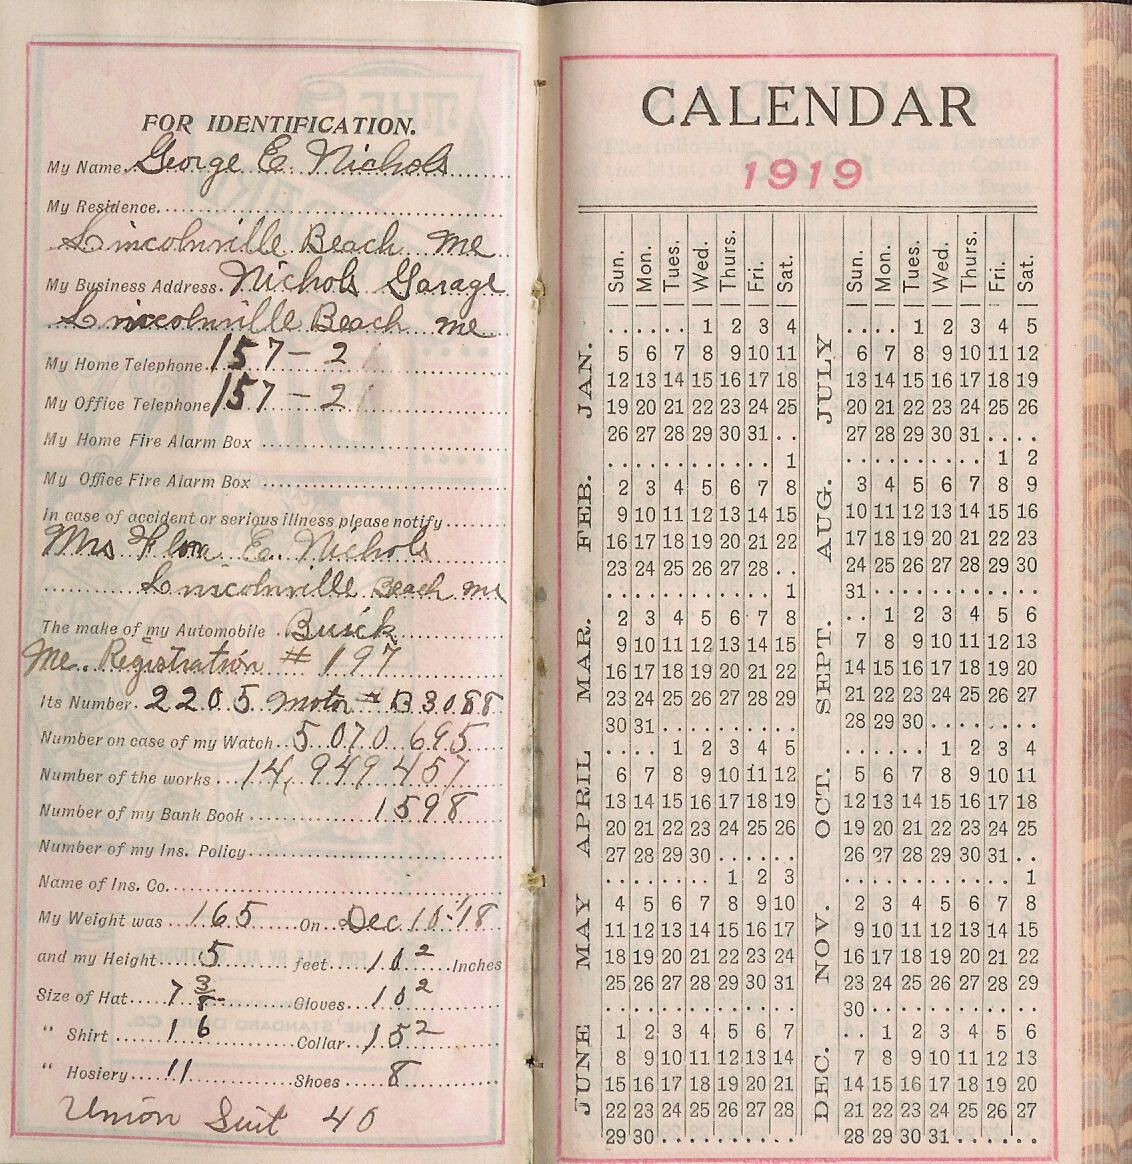 FOR IDENTIFICATION.
My Name George E. Nichols
My Residence
Lincolnville Beach Me
My Business Address. Nichols Garage
Lincolnville Beach Me
My Home Telephone 157-2
My Office Telephone 157-2
My Home Fire Alarm Box
My Office Fire Alarm Box
In case of accident or serious illness please notify
Mrs Flora E. Nichols
Lincolnville Beach Me
The make of my Automobile Buick
Me. Registration # 197
Its Number. 2205 Motor # B3088
Number on case of my Watch 5070695
Number of the works 14,949457
Number of my Bank Book 1598
Number of my Ins. Policy
Name of Ins. Co.
My Weight was 165 On Dec 10-'18
and my Height 5 feet 10 2 Inches
Size of Hat 7 3/8 Gloves 10 2
" Shirt 16 Collar 15 2
" Hosiery 11 Shoes 8
Union Suit 40
CALENDAR
1919
Sun. Mon. Tues. Wed. Thurs. Fri. Sat.
JAN.
1 2 3 4
5 6 7 8 9 10 11
12 13 14 15 16 17 18
19 20 21 22 23 24 25
26 27 28 29 30 31
FEB.
1
2 3 4 5 6 7 8
9 10 11 12 13 14 15
16 17 18 19 20 21 22
23 24 25 26 27 28
MAR.
1
2 3 4 5 6 7 8
9 10 11 12 13 14 15
16 17 18 19 20 21 22
23 24 25 26 27 28 29
30 31
APRIL
1 2 3 4 5
6 7 8 9 10 11 12
13 14 15 16 17 18 19
20 21 22 23 24 25 26
27 28 29 30
MAY
1 2 3
4 5 6 7 8 9 10
11 12 13 14 15 16 17
18 19 20 21 22 23 24
25 26 27 28 29 30 31
JUNE
1 2 3 4 5 6 7
8 9 10 11 12 13 14
15 16 17 18 19 20 21
22 23 24 25 26 27 28
29 30
Sun. Mon. Tues. Wed. Thurs. Fri. Sat.
JULY
1 2 3 4 5
6 7 8 9 10 11 12
13 14 15 16 17 18 19
20 21 22 23 24 25 26
27 28 29 30 31
AUG.
1 2
3 4 5 6 7 8 9
10 11 12 13 14 15 16
17 18 19 20 21 22 23
24 25 26 27 28 29 30
31
SEPT.
1 2 3 4 5 6
7 8 9 10 11 12 13
14 15 16 17 18 19 20
21 22 23 24 25 26 27
28 29 30
OCT.
1 2 3 4
5 6 7 8 9 10 11
12 13 14 15 16 17 18
19 20 21 22 23 24 25
26 27 28 29 30 31
NOV.
1
2 3 4 5 6 7 8
9 10 11 12 13 14 15
16 17 18 19 20 21 22
23 24 25 26 27 28 29
30
DEC.
1 2 3 4 5 6
7 8 9 10 11 12 13
14 15 16 17 18 19 20
21 22 23 24 25 26 27
28 29 30 31